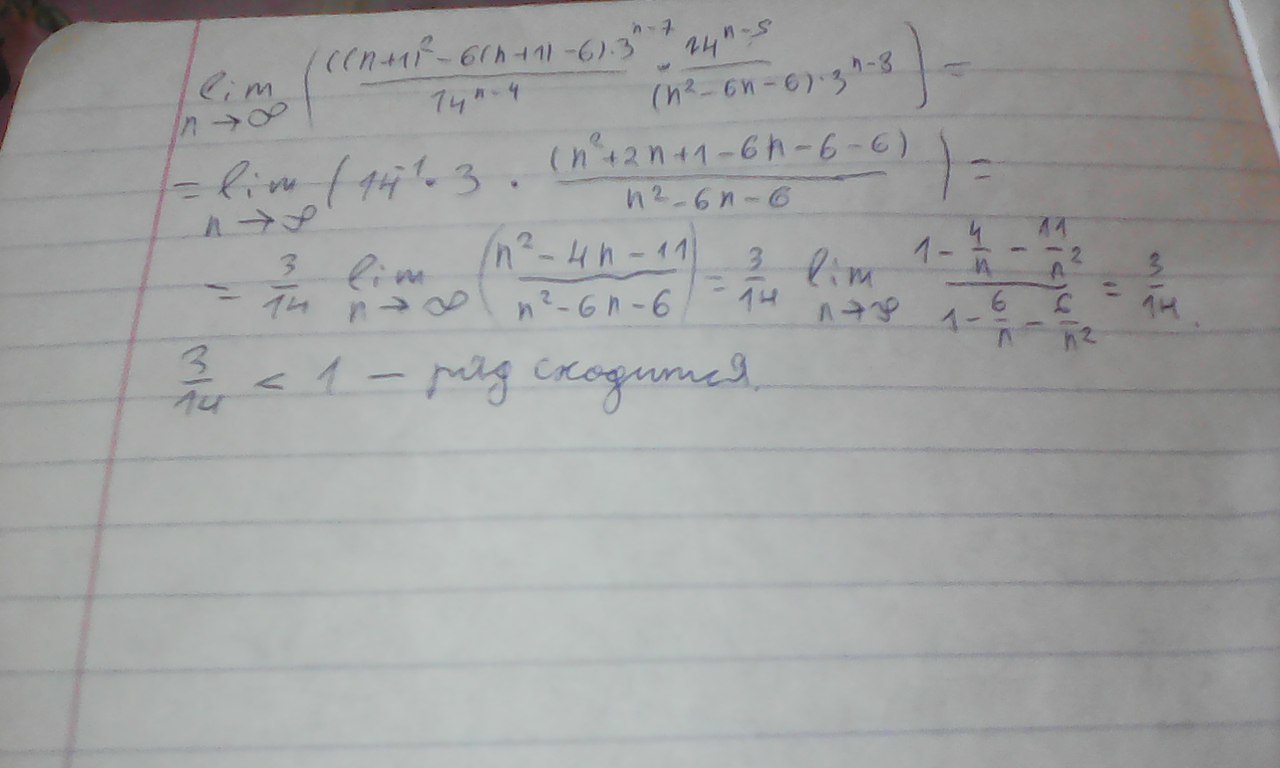 lim n→∞ (((n+1)² - 6(n+1) - 6)·3ⁿ⁻⁷ / 14ⁿ⁻⁴ · 14ⁿ⁻⁵ / (n² - 6n - 6)·3ⁿ⁻⁸) =
= lim n→∞ (14⁻¹ · 3 · (n² + 2n + 1 - 6n - 6 - 6) / n² - 6n - 6) =
= 3/14 lim n→∞ (n² - 4n - 11 / n² - 6n - 6) = 3/14 lim n→∞ 1 - 4/n - 11/n² / 1 - 6/n - 6/n² = 3/14.
3/14 < 1 — ряд сходится.